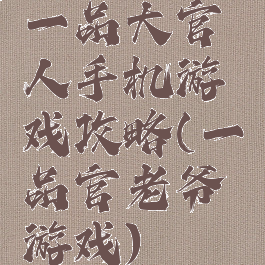 一品大官
人手机游
戏攻略(一
品官老爷
游戏)